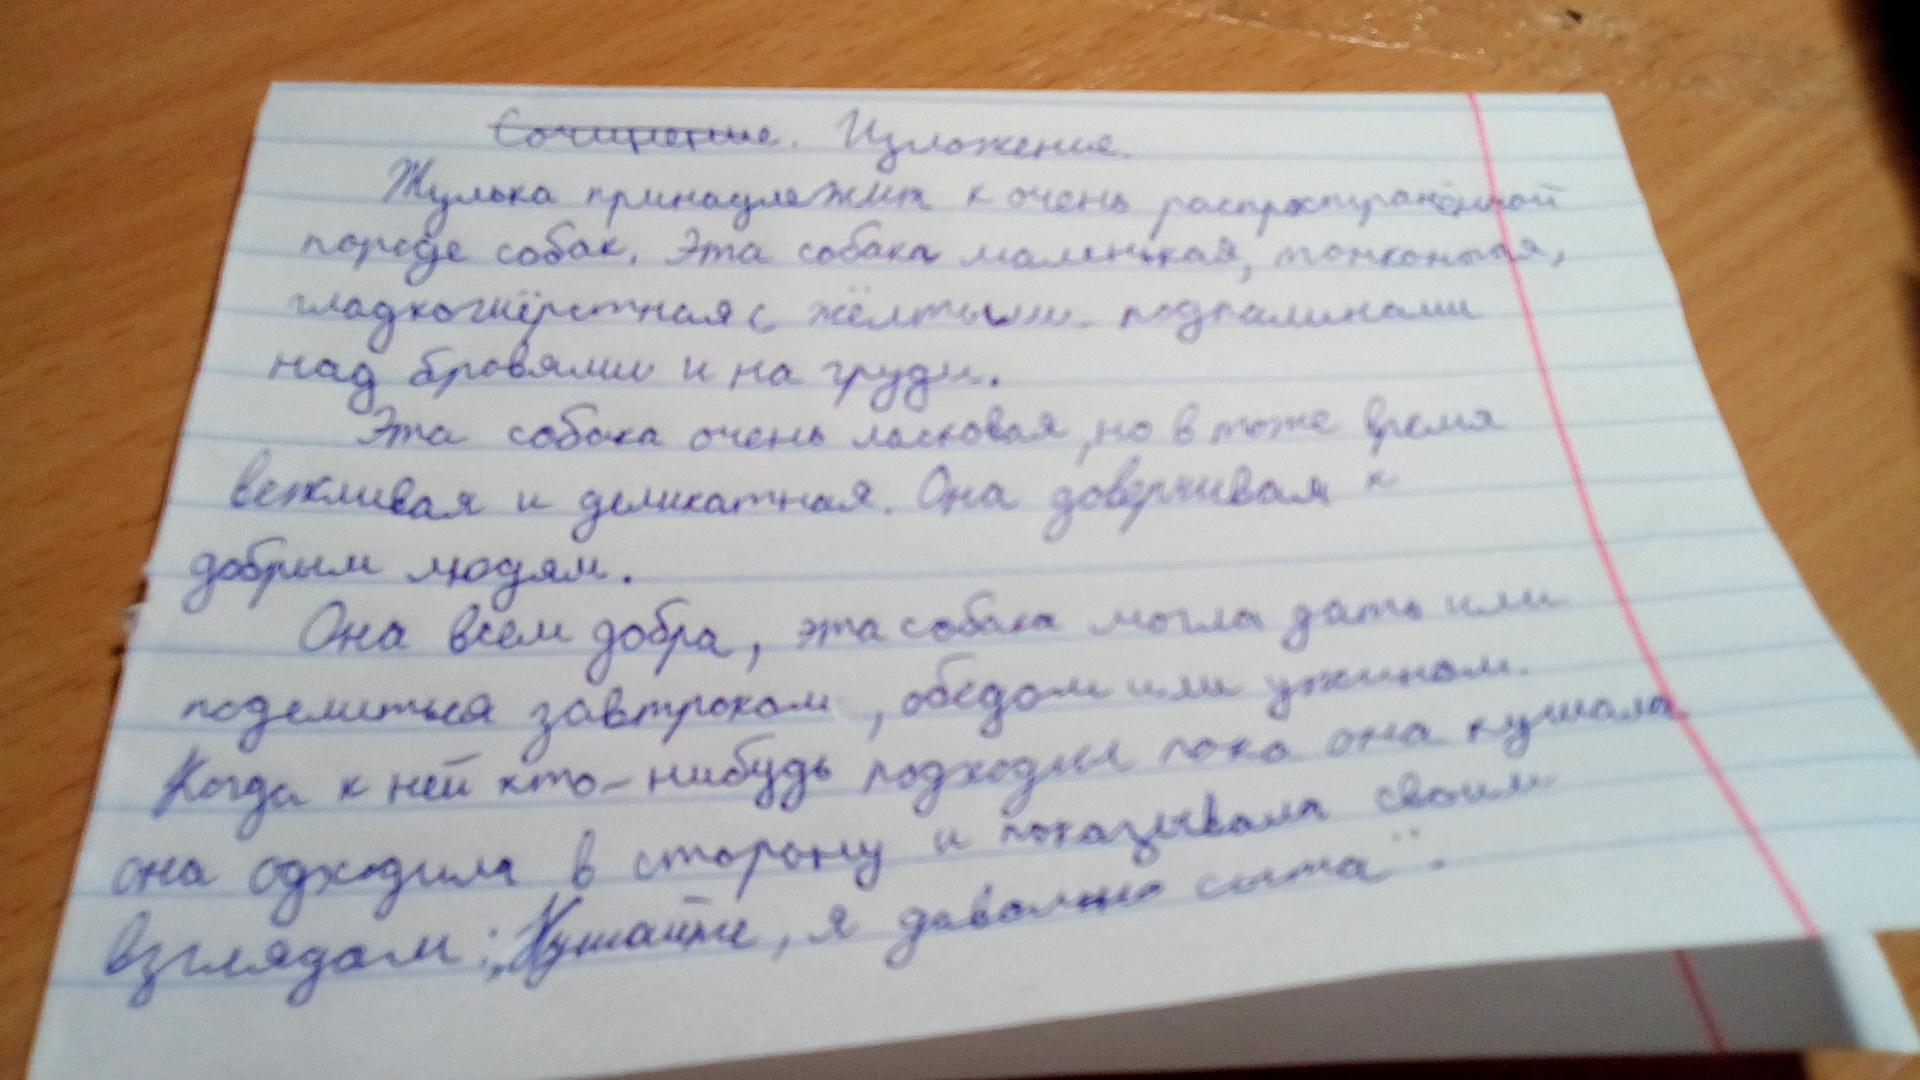 Сочинение. Изложение.
Жулька принадлежит к очень распространённой
породе собак. Эта собака маленькая, тонконогая,
гладкошёрстная с жёлтыми подпалинами
над бровями и на груди.
Эта собака очень ласковая, но в тоже время
вежливая и деликатная. Она доверчивая к
добрым людям.
Она всем добра, эта собака могла дать или
поделиться завтраком, обедом или ужином.
Когда к ней кто-нибудь подходил пока она кушала
она одходила в сторону и показывала своим
взглядам: „Кушайте, я давольно сыта".